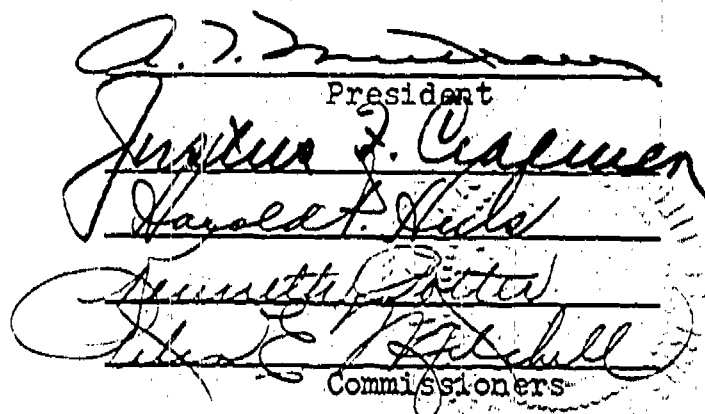 President
Justus F. Craemer
Harold P. Huls
Kenneth Potter
E. Mitchell
Commissioners